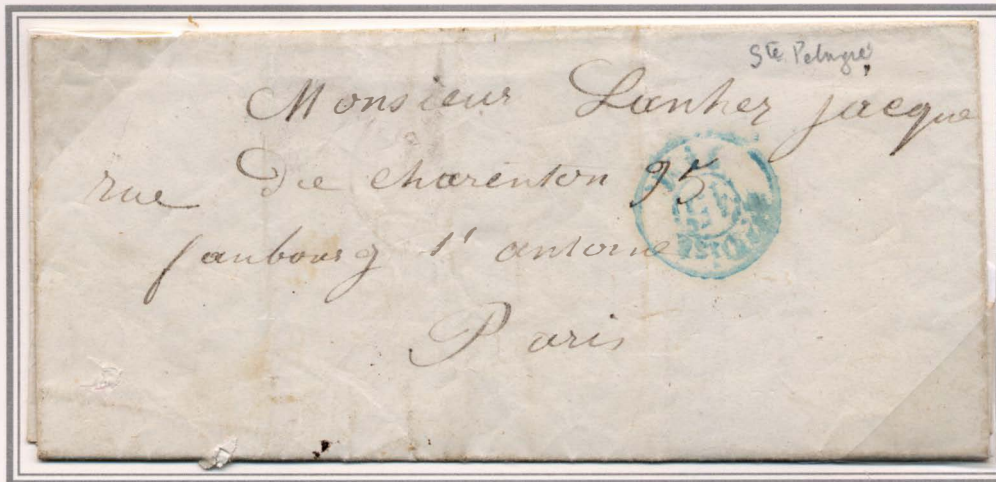 Ste Pelagie
Monsieur Lanher Jacque
rue De charenton 95
faubourg st antoine
Paris